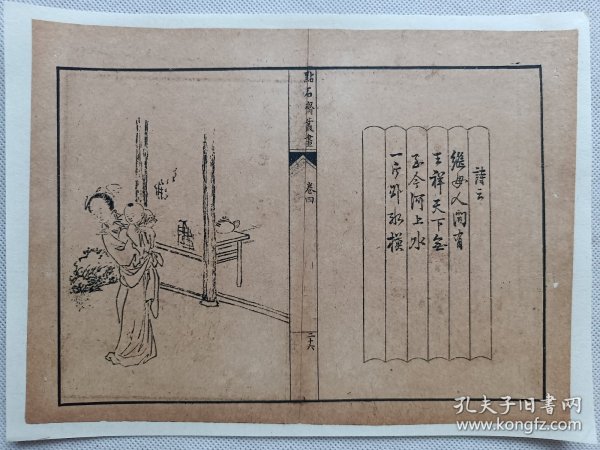 詩云
繼母人間有
王祥天下無
至今河上水
一片卧氷模
點石齋叢畫
卷四
二十六
孔夫子旧书网
www.kongfz.com